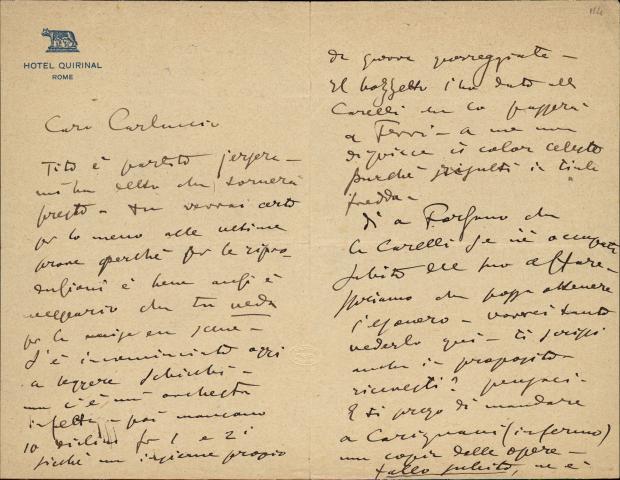 HOTEL QUIRINAL
ROME
Caro Carluccio
Tito è partito jersera –
m'ha detto che tornerà
presto – tu verrai certo
per lo meno alle ultime
prove perchè per le ripro-
duzioni è bene anzi è
necessario che tu veda
per la mise en scene –
S'è incominciato oggi
a leggere Schicchi –
ma c'è un'orchestra
infetta – poi mancano
10 violini fra 1 e 2i
sicchè un insieme proprio
da guerra guerreggiata –
Il bozzetto l'ho dato alla
Carelli che lo passerà
a Ferri – a me non
dispiace il color celeste
purchè risulti in tinta
fredda –
Dì a Forzano che
la Carelli se n'è occupata
subito del suo affare –
speriamo che possa ottenere
l'esonero – vorrei tanto
vederlo qui – ti scrissi
anche in proposito
ricevesti? pensaci –
E ti prego di mandare
a Carignani (infermo)
una copia delle opere –
fallo subito, ne è